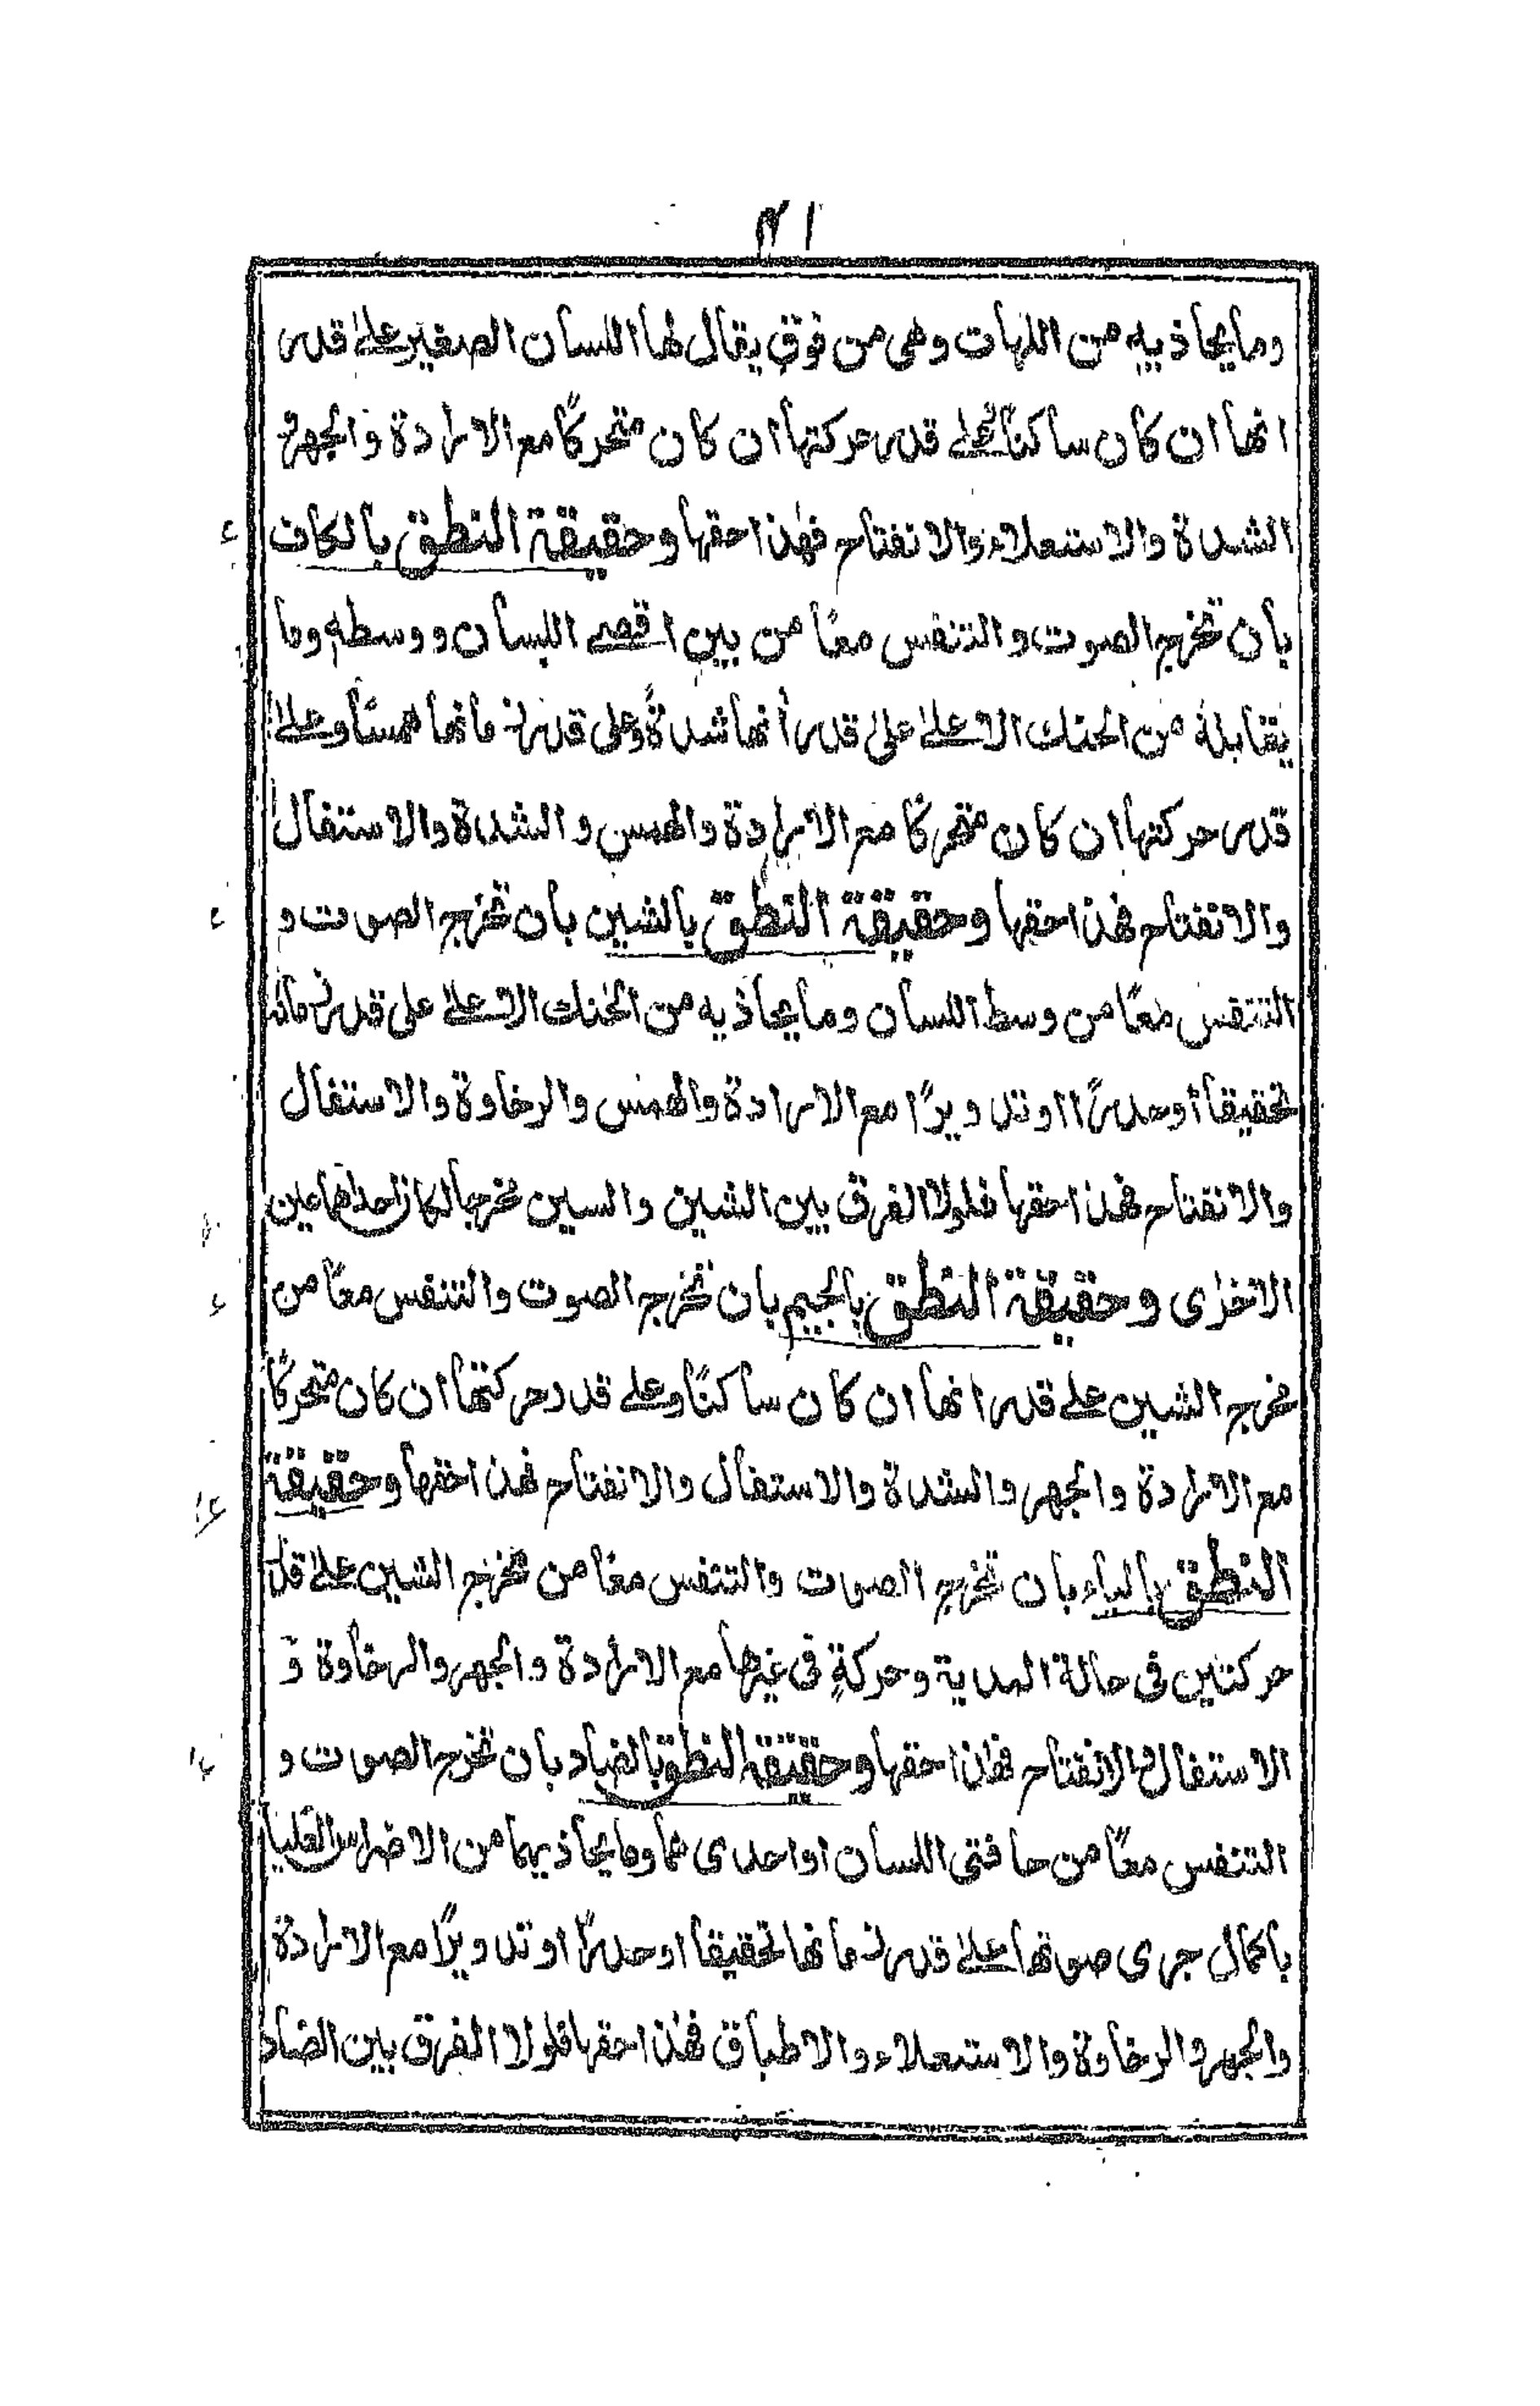 ۲۱
وما يحاذيه من اللهات وهى من فوق يقال لها اللسان الصغير على قدر
انها ان كان ساكنًا على قدر حركتها ان كان متحركًا مع الارادة والجهر و
الشدة والاستعلاء والانفتاح فهذا حقها وحقيقة النطق بالكاف
بان تخرج الصوت والتنفس معًا من بين اقصى اللسان ووسطه وما
يقابله من الحنك الاعلىٰ علىٰ قدر أنها شدةً وعلى قدر زمانها همسًا وعلىٰ
قدر حركتها ان كان متحركًا مع الارادة والهمس والشدة والاستفال
والانفتاح فهذا حقها وحقيقة النطق بالشين بان تخرج الصوت و
التنفس معًا من وسط اللسان وما يحاذيه من الحنك الاعلى على قدر زمانها
تحقيقا أوحدرًا اوتدويرًا مع الارادة والهمس والرخاوة والاستفال
والانفتاح فهذا حقها فلولا الفرق بين الشين والسين مخرجا لكان احداهما عين
الاخرٰى وحقيقة النطق بالجيم بان تخرج الصوت والتنفس معًا من
مخرج الشين على قدر انها ان كان ساكنًا وعلى قدر حركتها ان كان متحركًا
مع الارادة والجهر والشدة والاستفال والانفتاح فهذا حقها وحقيقة
النطق بالياء بان تخرج الصوت والتنفس معًا من مخرج الشين علىٰ قدر
حركتين فى حالة المدية وحركةٍ فى غيرها مع الارادة والجهر والرخاوة و
الاستفال والانفتاح فهذا حقها وحقيقة النطق بالضاد بان تخرج الصوت و
التنفس معًا من حافتى اللسان اواحدى هما وما يحاذيهما من الاضراس العليا
باكمال جرى صوتها علىٰ قدر زمانها تحقيقا اوحدرًا اوتدويرًا مع الارادة
والجهر والرخاوة والاستعلاء والاطباق فهذا حقها فلولا الفرق بين الضاد